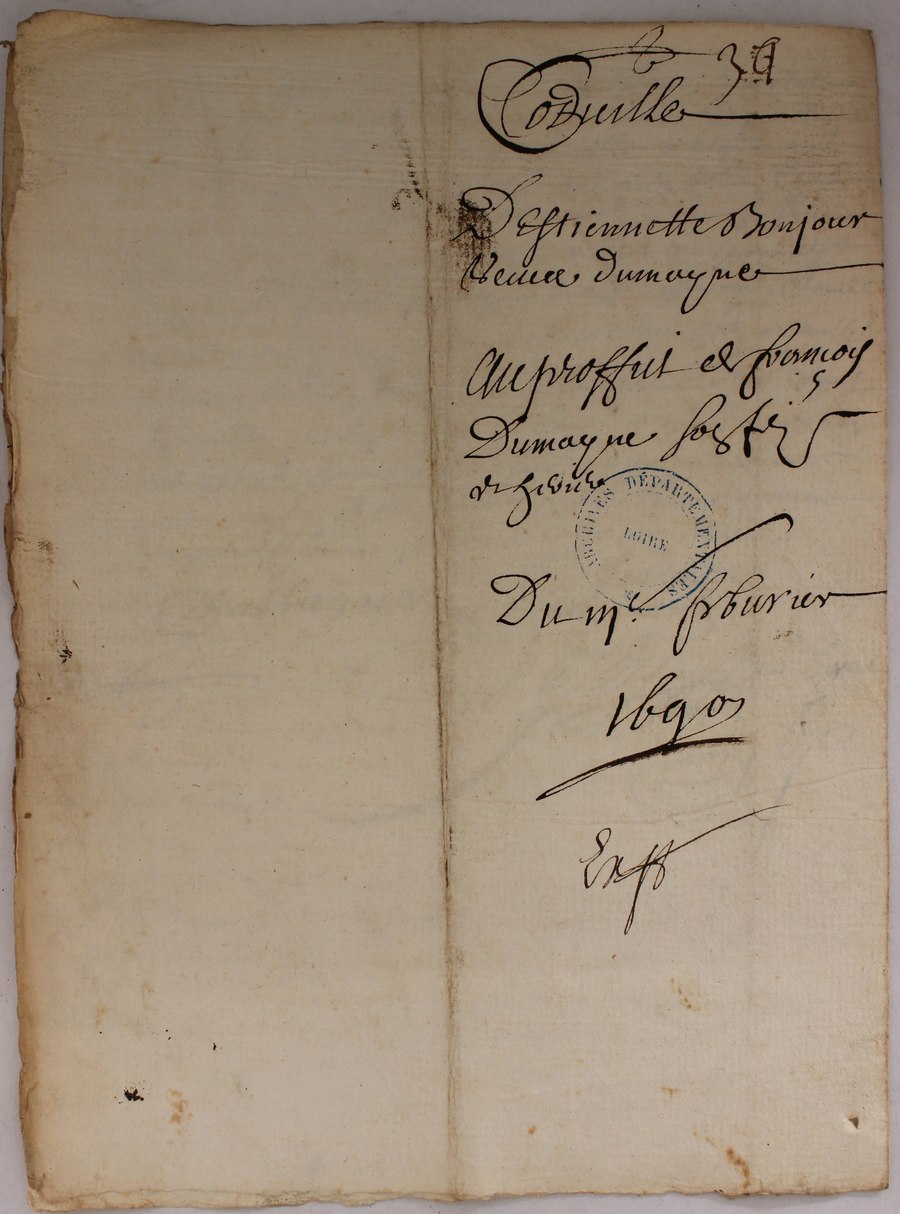 39
Codicille
D'Estiennette Bonjour
Veuve Dumayne
Au proffit de francois
Dumayne son filz
et heritier
ARCHIVES DÉPARTEMENTALES
LOIRE
Du me febvrier
1690